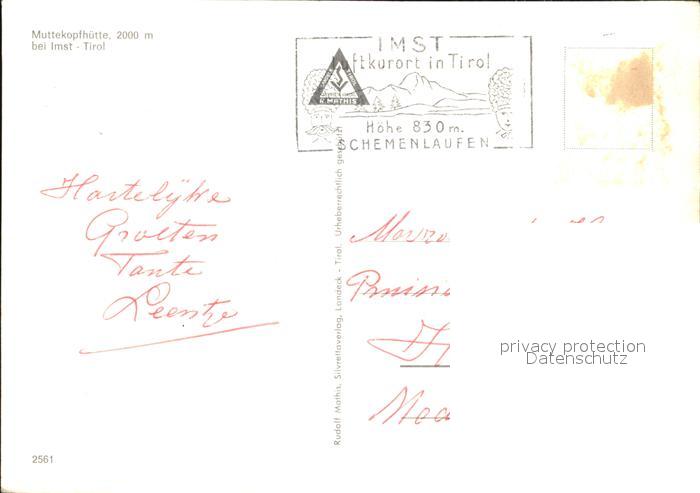 Muttekopfhütte, 2000 m
bei Imst - Tirol
IMST
Luftkurort in Tirol
R. MATHIS
Höhe 830 m.
SCHEMENLAUFEN
Hartelijke
Groeten
Tante
Leentje
Rudolf Mathis, Silvrettaverlag, Landeck - Tirol. Urheberrechtlich geschützt
privacy protection
Datenschutz
2561